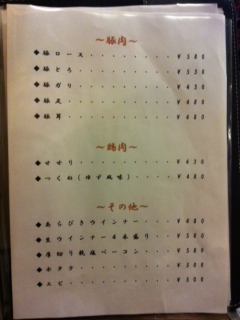 ～豚肉～
◆豚ロース・・・・・・・・・・¥380
◆豚とろ・・・・・・・・・・・¥530
◆豚ガリ・・・・・・・・・・・¥430
◆豚足・・・・・・・・・・・・¥480
◆豚耳・・・・・・・・・・・・¥480
～鶏肉～
◆せせり・・・・・・・・・・・¥430
◆つくね(ゆず風味)・・・・・¥480
～その他～
◆あらびきウインナー・・・・¥480
◆生ウインナー4本盛り・・・¥580
◆厚切り熟成ベーコン・・・・¥580
◆ホタテ・・・・・・・・・・・¥580
◆エビ・・・・・・・・・・・・¥580